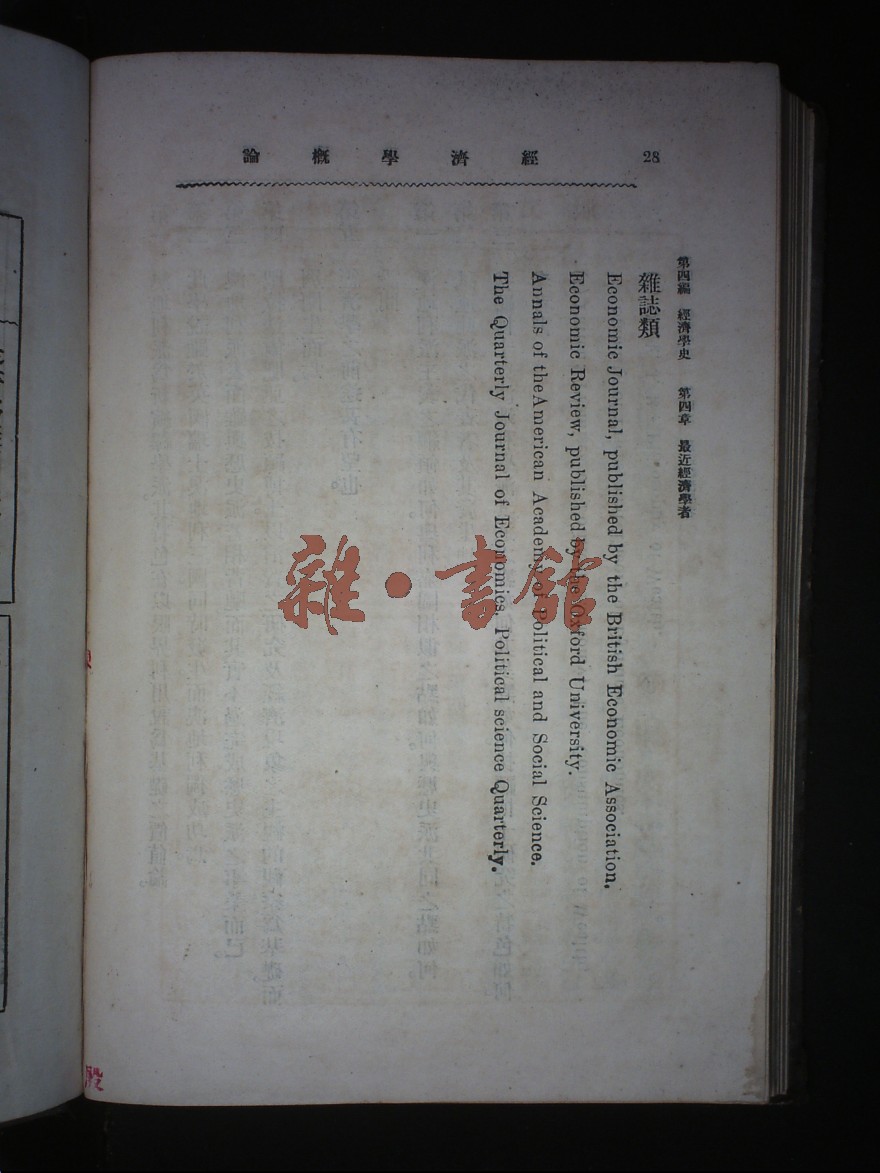 經濟學概論
28
第四編 經濟學史 第四章 最近經濟學者
雜誌類
Economic Journal, published by the British Economic Association.
Economic Review, published by the Oxford University.
Annals of theAmerican Academy of Political and Social Science.
The Quarterly Journal of Economics. Political science Quarterly.
雜·書館